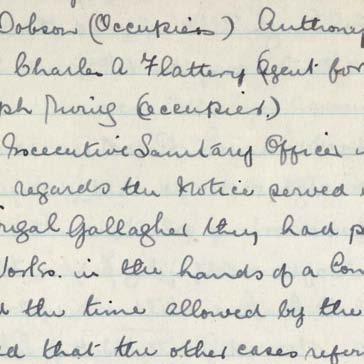 Dobson (Occupiers) Anthony
Charles A Flattery Agent for
ph (Occupier.)
Executive Sanitary Officer
regards the Notice served
Gallagher they had p
Works. in the hands of a Con
d the time allowed by the
ed that the other cases refer